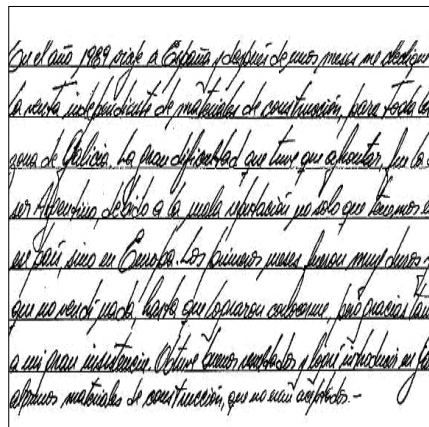 En el año 1989 viaje a España y después de unos meses me dedique
la venta independiente de materiales de construcción, para toda la
zona de Galicia. La gran dificultad que tuve que afrontar, fue la d
ser Argentino, debido a la mala reputación no solo que tenemos e
ese país, sino en Europa. Los primeros meses fueron muy duros
que no vendí nada, hasta que lograron conocerme, pero gracias tam
a mi gran insistencia. Obtuve buenos resultados y logré introducir en
algunos materiales de construcción, que no eran aceptados.-